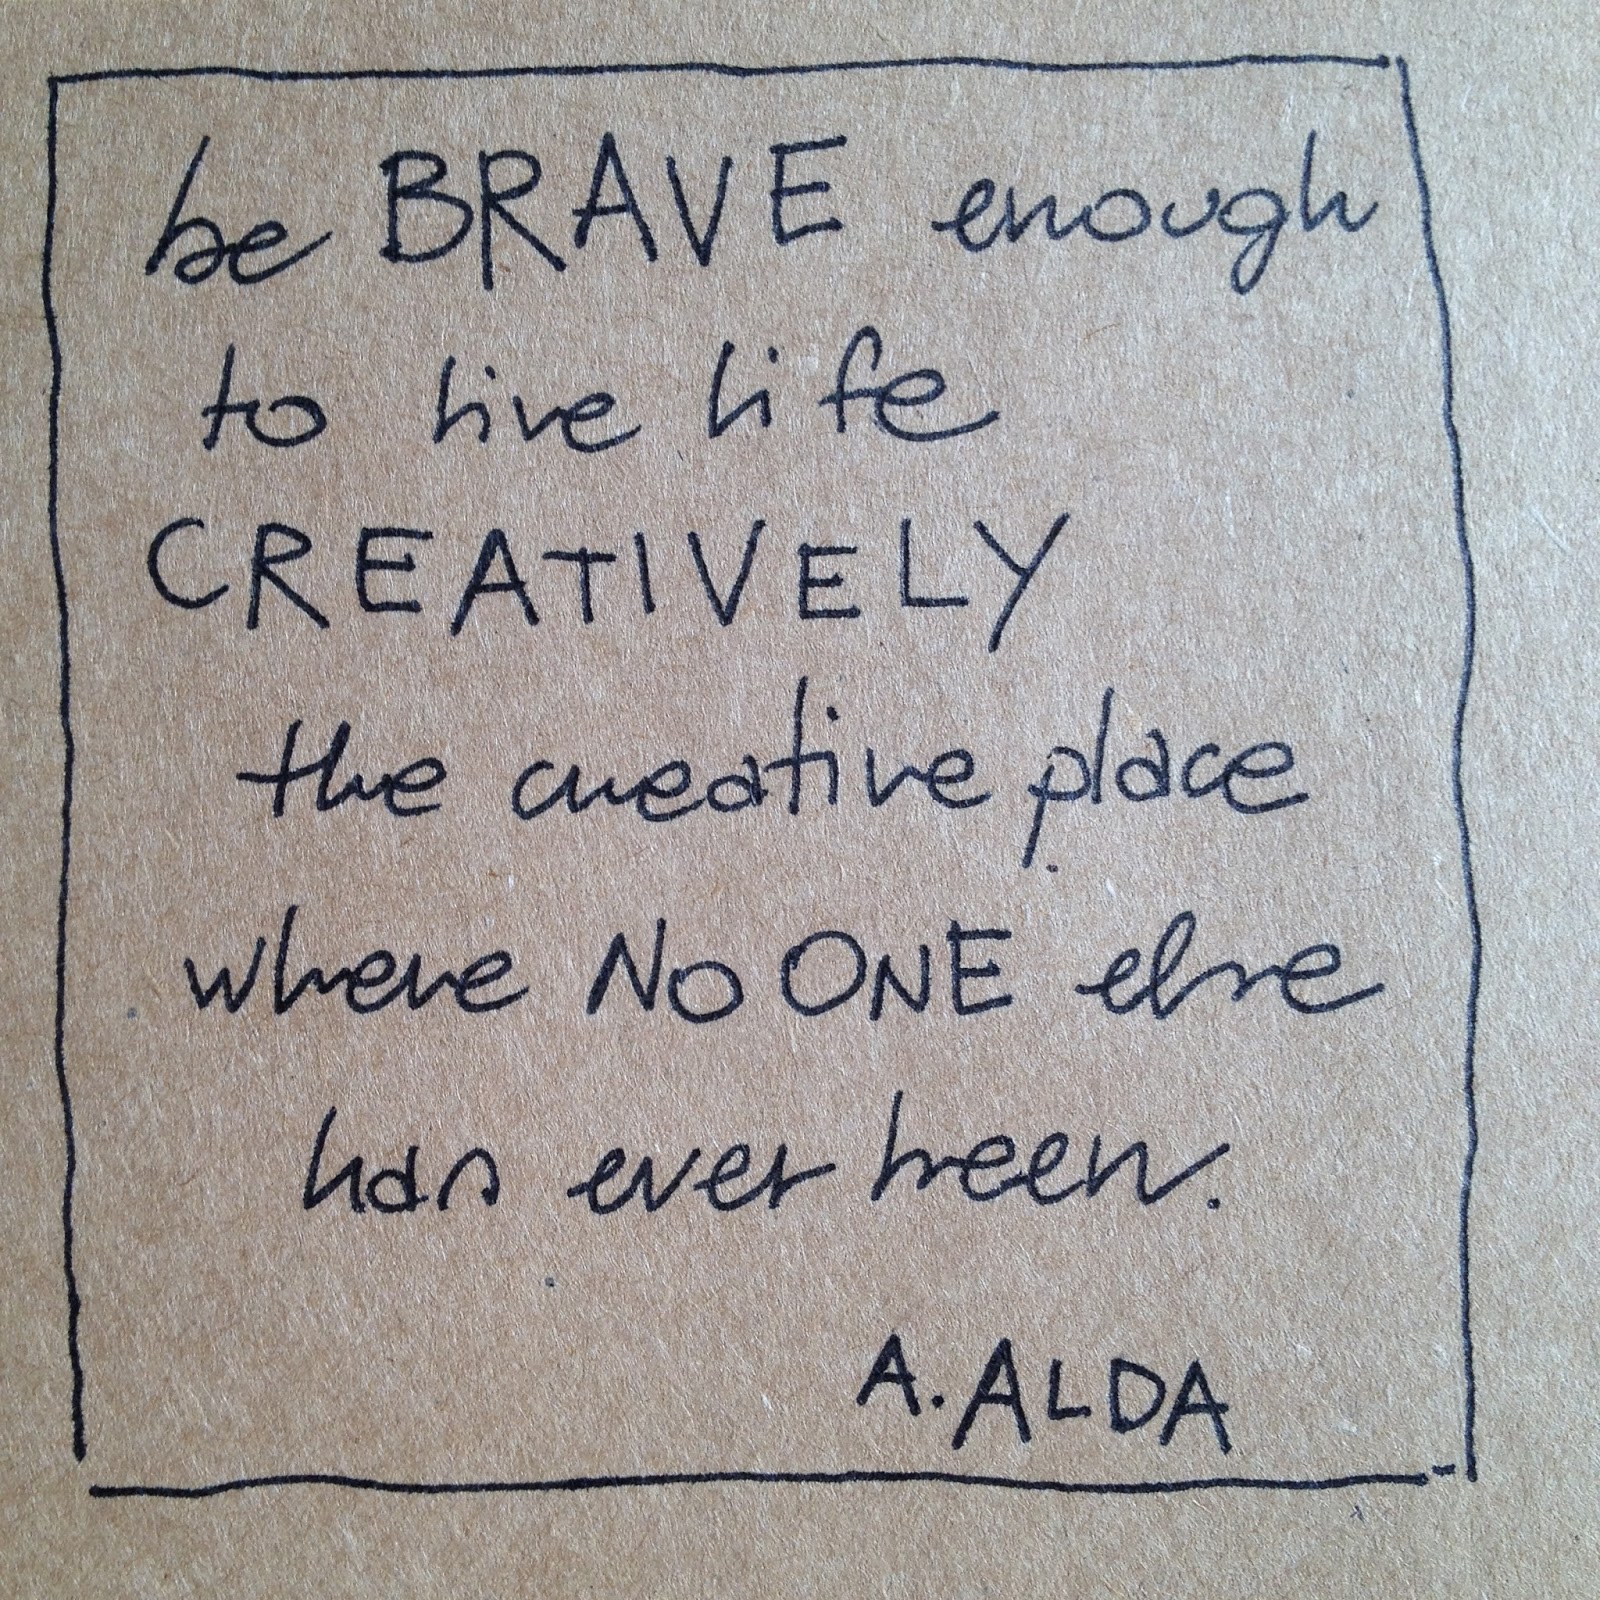 be BRAVE enough
to live life
CREATIVELY
the creative place
where NO ONE else
has ever been.
A. ALDA